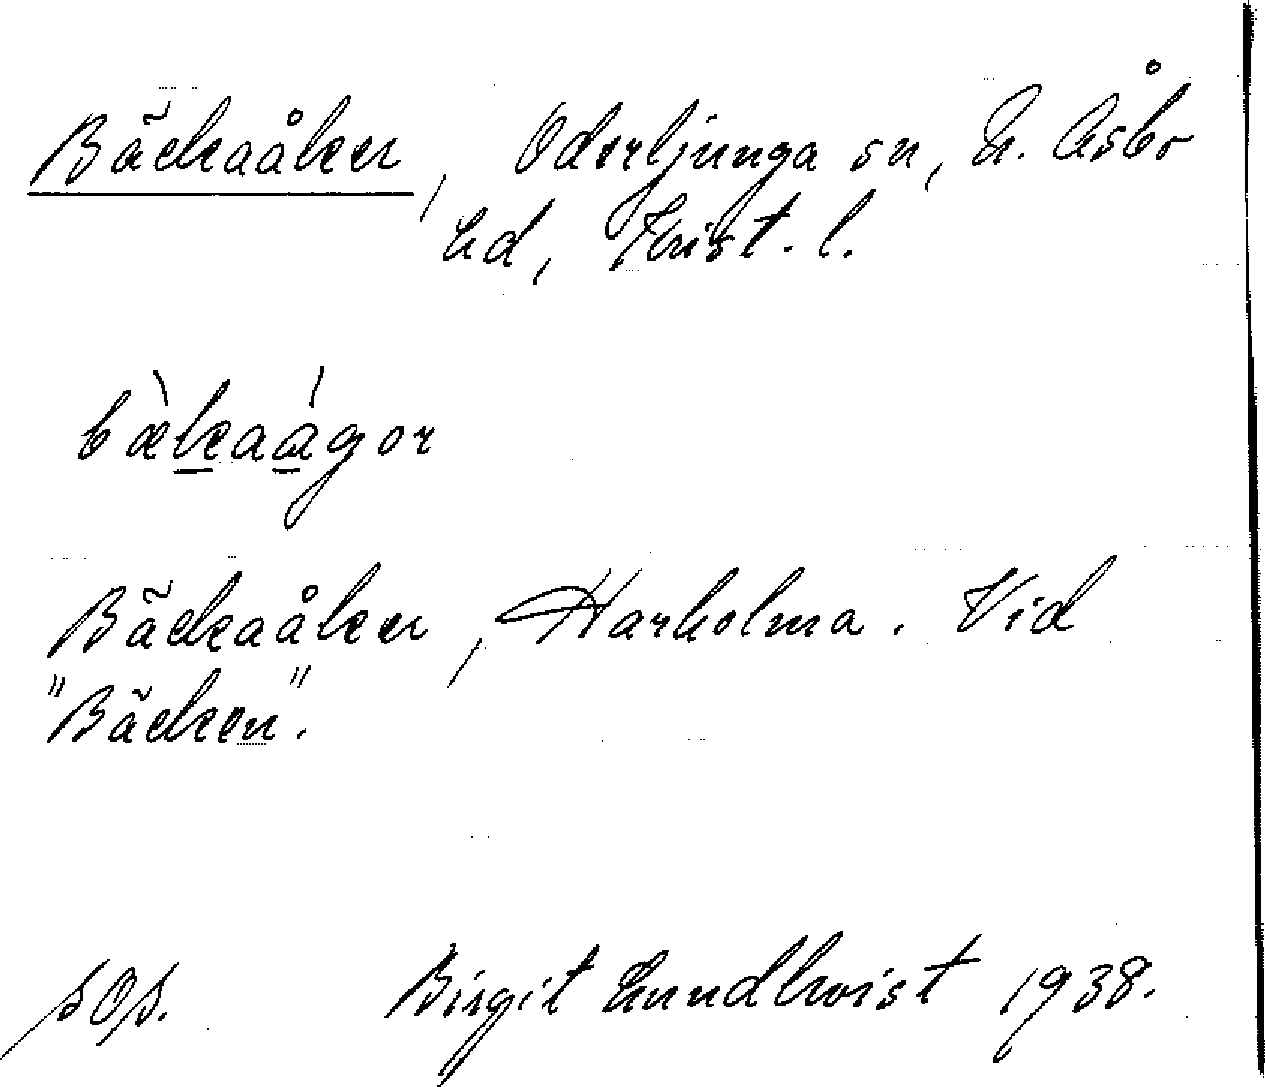 Bäckaåker, Oderljunga sn, N. Åsbo
hd, Krist. l.
bæ̀kaágor
Bäckaåker, Harholma. Vid
"Bäcken".
Birgit Lundkvist 1938.